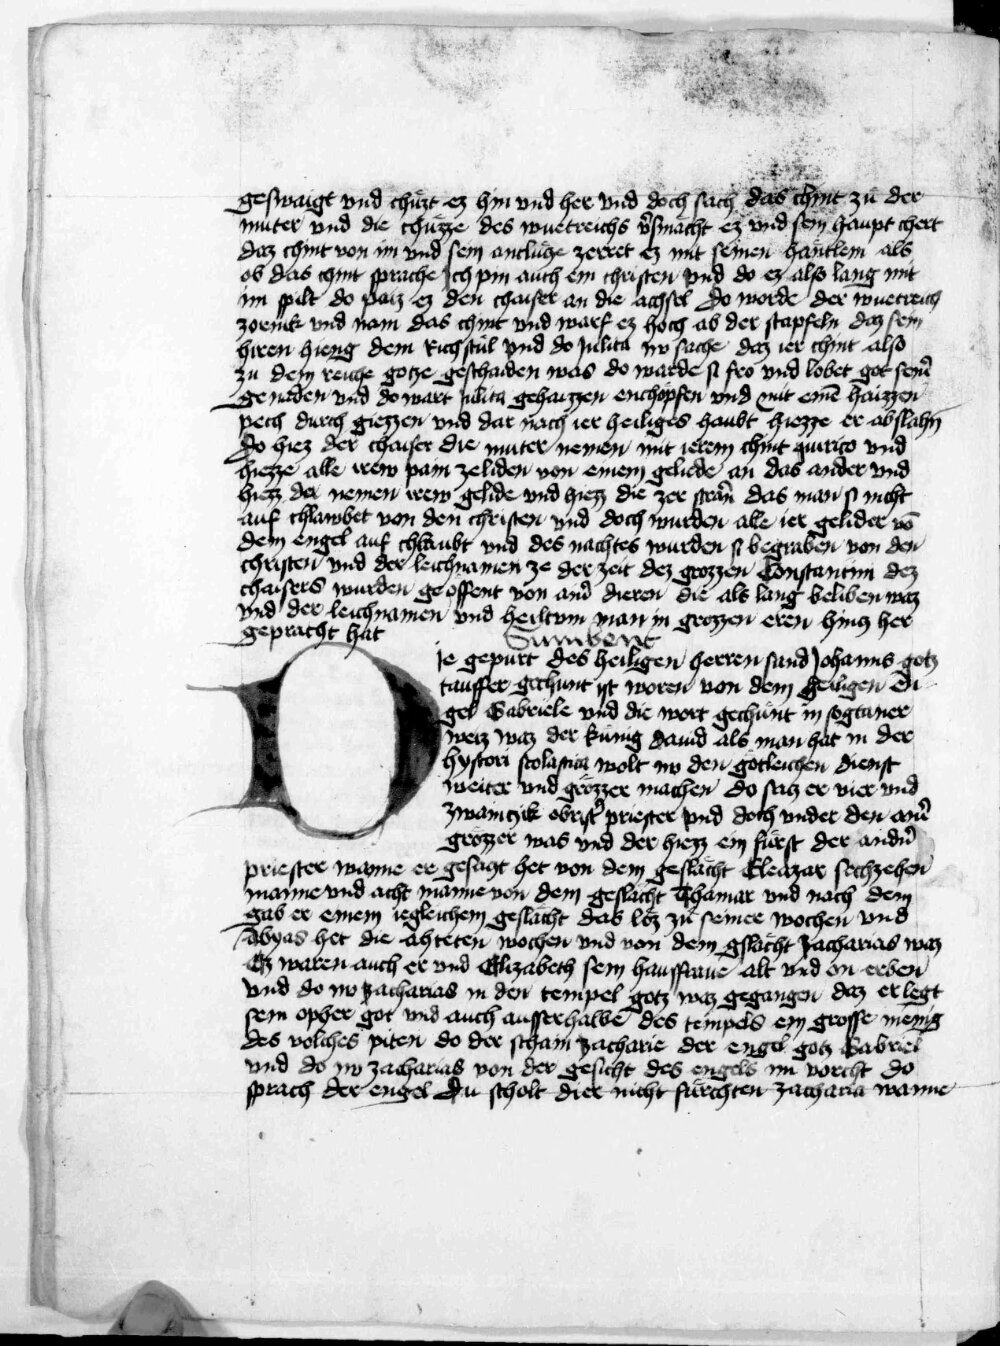 geswaigt vnd chüzt ez hin vnd her vnd doch sach das chint zü der
muter vnd die chüzze des wuetreichs v̉smacht ez vnd sein haupt chert
daz chint von im vnd sein antlütze zerret ez mit seinen häntlein als
ob das chint sprache Ich pin auch ein christen vnd do ez also lang mit
im spilt do paiz ez den chaiser an die achsel Do worde der wuetreich
zornik vnd nam das chint vnd warf ez hoch ab der stapfeln daz sein
hiren hieng dem richstůl vnd do Julita nv sache daz ier chint also
zu dem reiche gotze geschaiden was do warde si fro vnd lobet got sein̉
genaden vnd do wart Julita gehaizzen enchöpfen vnd mit einē haizzen
pech durch giezzen vnd dar nach ier heiliges haubt hiezze er abslahn
Do hiez der chaiser die muter nemen mit ierem chint quirico vnd
hiezze alle irew pain zeliden von einem gelide an das ander vnd
hiezz der nemen irew gelide vnd hiezz die zer strän das man si nicht
auf chlawbet von den christen vnd doch wurden alle ier gelider vō
dem engel auf chlaubt vnd des nachtes wurden si begraben von den
christen vnd der leichnamen ze der zeit dez grozzen Constantini dez
chaisers wurden geöffent von ain̉ dieren die als lang beliben waz
vnd der leichnamen vnd heiltvm man in grozzen eren hintz her
gepracht hat
Sunwent
ie gepurt des heiligen herren sand Johanns gotz
tauffer gechunt ist woren von dem heiligen en
gel Gabriele vnd die wort gechünt in sogtaner
weiz waz der künig dauid als man hat in der
hystori scolastica wolt nv den gotleichen dienst
weiter vnd grözzer machen do satz er vier vnd
zwainczik obrist̉ priester vnd doch vnder den ain̉
grözzer was vnd der hiezz ein fürst der andn̉
priester wanne er gesagt het von dem geslächt Eleazar sechzehen
manne vnd acht manne von dem geslächt Thamar vnd nach dem
gab er einem iegleichem geslächt das löz zu seiner wochen vnd
Abyas het die ahteten wochen vnd von dem gslächt Zacharias waz
Ez waren auch er vnd Elizabeth sein hausfrawe alt vnd on erben
vnd do nv zacharias in den tempel gotz waz gegangen daz er legt
sein opher got vnd auch ausserhalbē des tempels ein grosse menig
des volches piten do der schain zacharie der engel gotz Gabriel
vnd do nv zacharias von der gesicht des engels im vorcht do
sprach der engel Du scholt dier nicht fürchten zacharia wanne